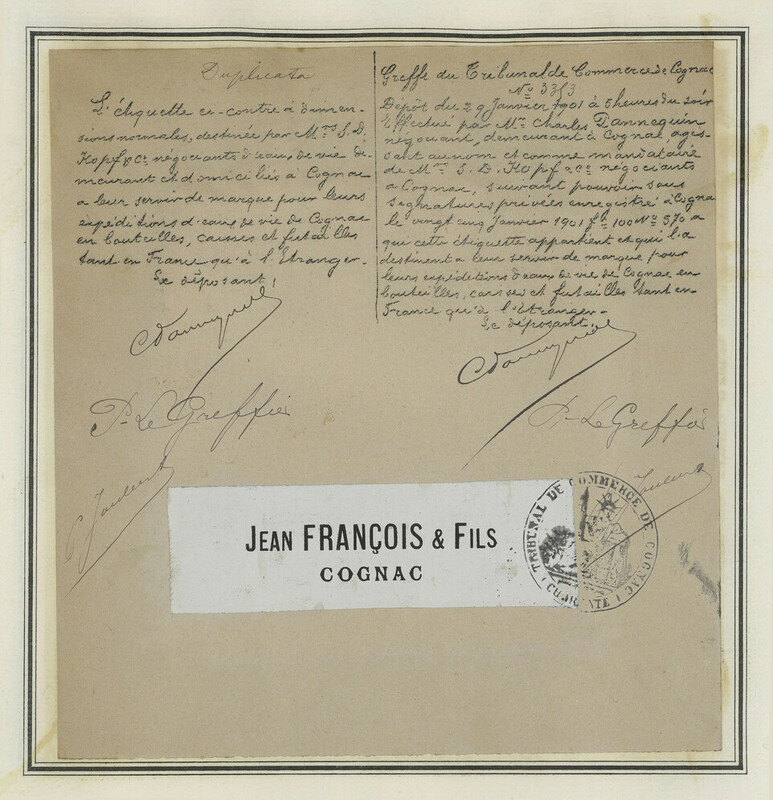 Duplicata
L'étiquette ci-contre à dimen-
sions normales, destinée par Mrs S. D.
Kopf & Co négociants d'eaux de vie de-
meurant et domiciliés à Cognac
a leur servir de marque pour leurs
expéditions d'eaux de vie de Cognac
en bouteilles, caisses et futailles
tant en France qu'à l'Etranger-
Le déposant,
CDannequin
P. Le Greffier
Greffe du Tribunal de Commerce de Cognac
No 3313
Dépôt du 29 Janvier 1901 à 5 heures du soir
Effectué par Mr Charles Dannequin
négociant, demeurant à Cognac, agis-
sant au nom et comme mandataire
de Mrs S. D. Kopf & Co négociants
a Cognac, suivant pouvoir sous
signatures privées enregistré à Cognac
le vingt cinq Janvier 1901 fo 100 No 570 a
qui cette étiquette appartient et qui la
destinent a leur servir de marque pour
leurs expéditions d'eaux de vie de Cognac en
bouteilles, caisses et futailles tant en-
France qu'à l'Etranger-
Le déposant.
CDannequin
P. Le Greffier
JEAN FRANÇOIS & FILS
COGNAC
TRIBUNAL DE COMMERCE DE COGNAC